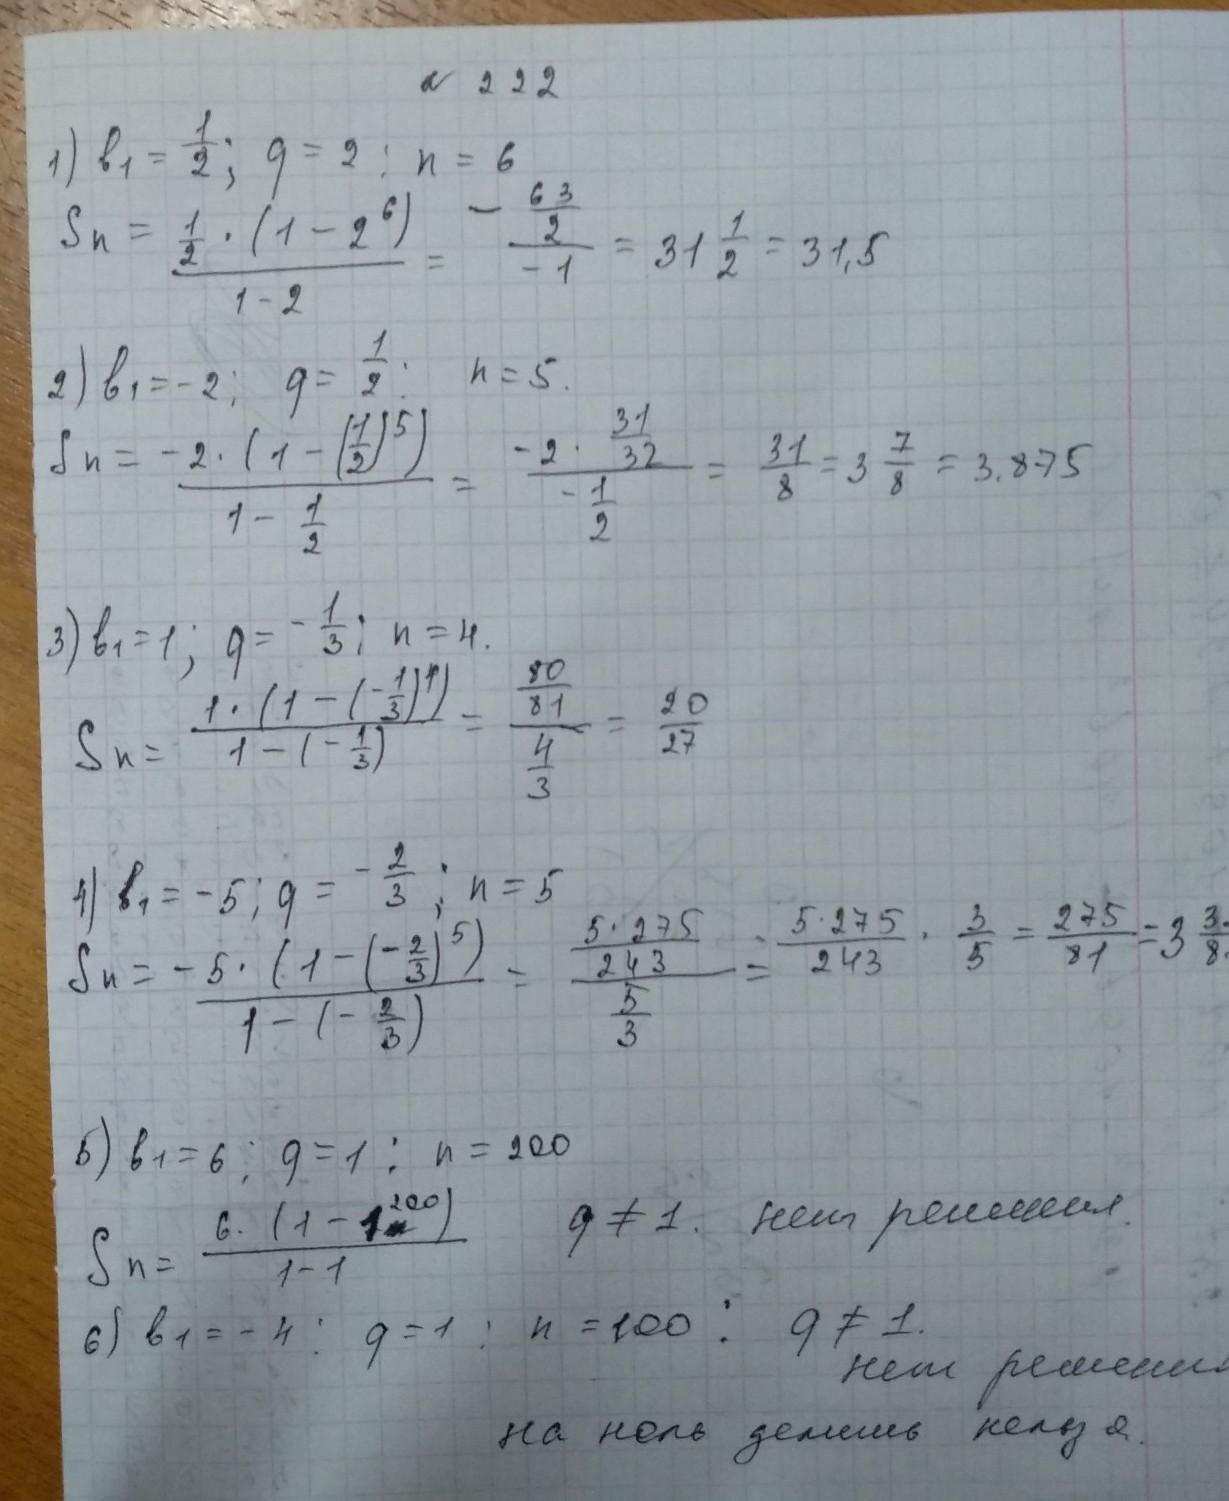 № 222
1) b₁ = 1/2; q = 2 : n = 6
Sn = (1/2 · (1 - 2⁶))/(1 - 2) = (- 63/2)/(-1) = 31 1/2 = 31,5
2) b₁ = -2; q = 1/2; n = 5.
Sn = (-2 · (1 - (1/2)⁵))/(1 - 1/2) = (-2 · 31/32)/(-1/2) = 31/8 = 3 7/8 = 3.875
3) b₁ = 1; q = -1/3; n = 4.
Sn = (1 · (1 - (-1/3)⁴))/(1 - (-1/3)) = (80/81)/(4/3) = 20/27
4) b₁ = -5; q = -2/3; n = 5
Sn = (-5 · (1 - (-2/3)⁵))/(1 - (-2/3)) = (5·275/243)/(5/3) = 5·275/243 · 3/5 = 275/81 = 3
5) b₁ = 6; q = 1; n = 200
Sn = (6 · (1 - 1²⁰⁰))/(1 - 1) q ≠ 1. нет решения.
6) b₁ = -4 : q = 1 : n = 100 : q ≠ 1.
нет решения
на ноль делишь нельзя.